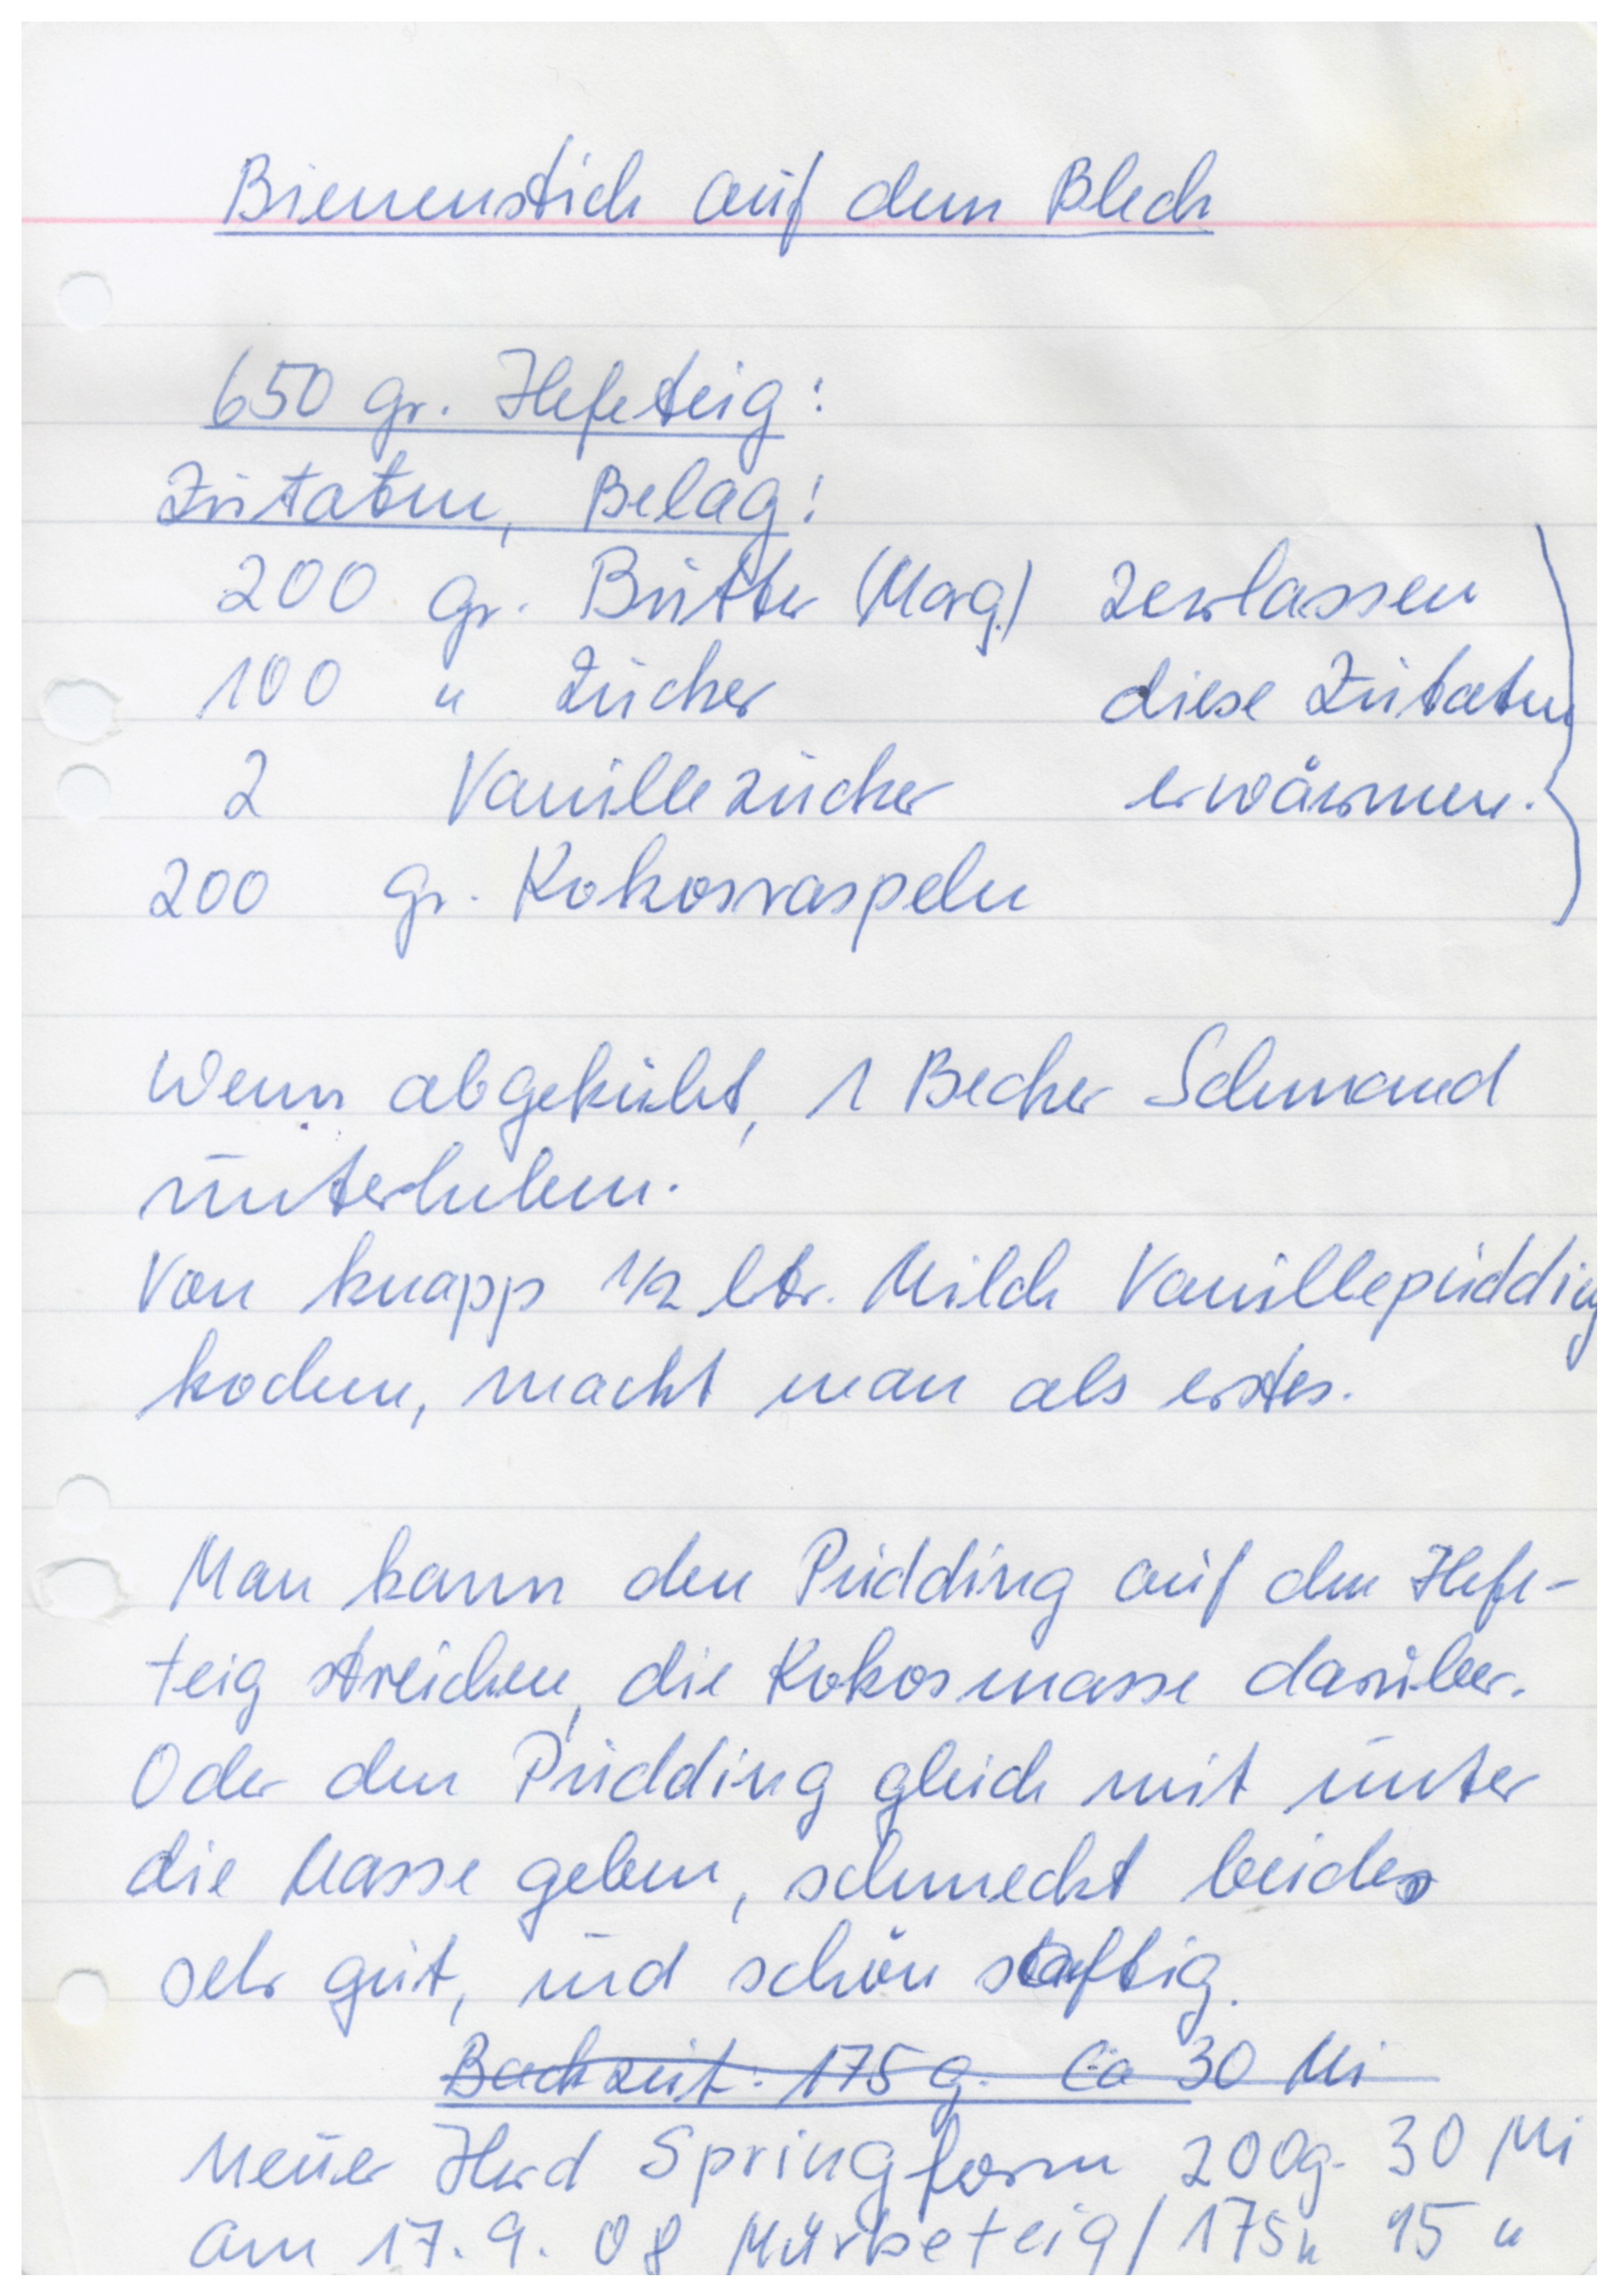 Bienenstich auf dem Blech
650 gr. Hefeteig:
Zutaten, Belag:
200 gr. Butter (Marg.) zerlassen
100 " Zucker diese Zutaten
2 Vanillezucker erwärmen.
200 gr. Kokosraspeln
Wenn abgekühlt, 1 Becher Schmand
unterheben.
Von knapp 1/2 ltr. Milch Vanillepudding
kochen, macht man als erstes.
Man kann den Pudding auf den Hefe-
teig streichen, die Kokosmasse darüber.
Oder den Pudding gleich mit unter
die Masse geben, schmeckt beides
sehr gut, und schön saftig.
Backzeit: 175 g. Ca 30 Mi
Neuer Herd Springform 200g. 30 Mi
am 17.9.08 Mürbeteig / 175 " 15 "